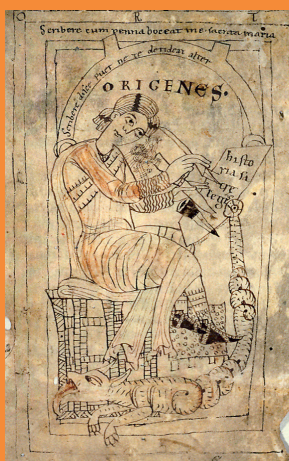 O R I
Scribere cum penna doceat me sancta maria
Scribere disce puer ne te derideat alter
ORIGENES·
histo
ria si
gre
lege